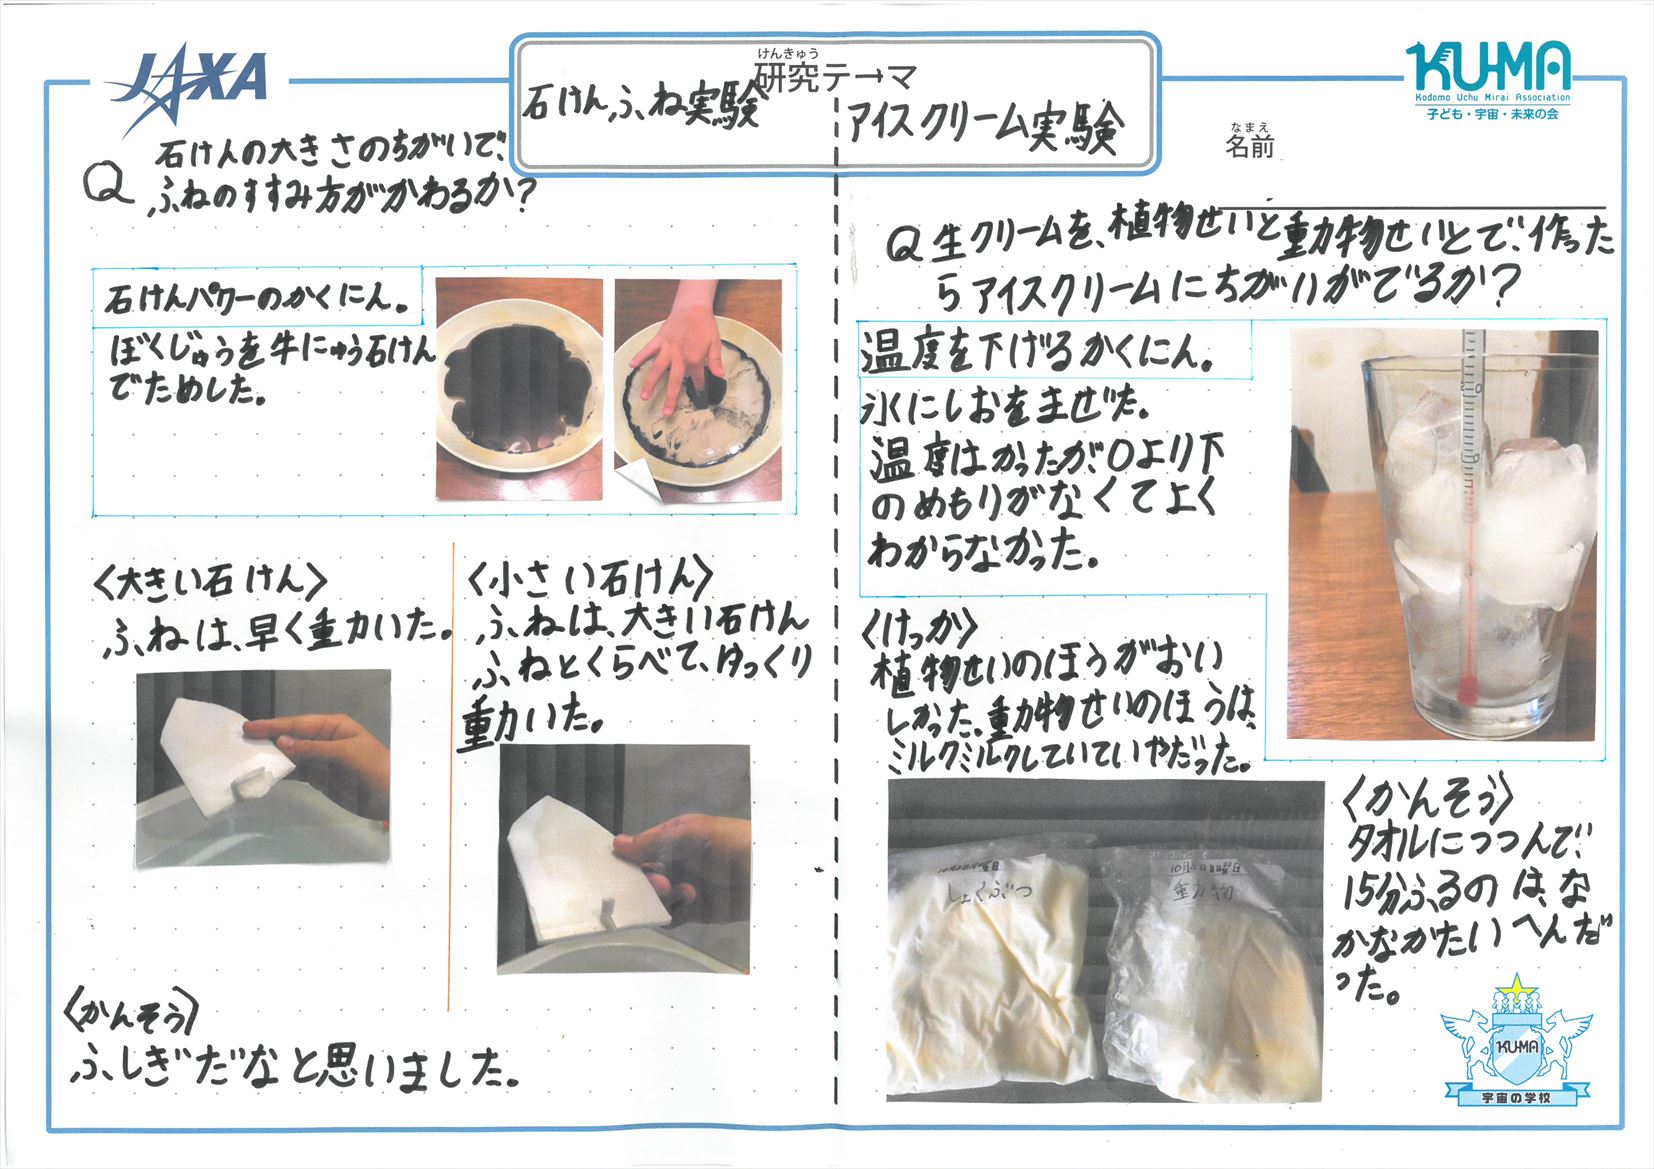 JAXA
けんきゅう
研究テーマ
石けんふね実験
アイスクリーム実験
KU-MA
Kodomo Uchu Mirai Association
子ども・宇宙・未来の会
なまえ
名前
Q 石けんの大きさのちがいで、
ふねのすすみ方がかわるか?
石けんパワーのかくにん。
ぼくじゅうを牛にゅう石けん
でためした。
〈大きい石けん〉
ふねは、早く動いた。
〈小さい石けん〉
ふねは、大きい石けん
ふねとくらべて、ゆっくり
動いた。
〈かんそう〉
ふしぎだなと思いました。
Q 生クリームを、植物せいと動物せいとで、作った
らアイスクリームにちがいがでるか?
温度を下げるかくにん。
氷にしおをまぜた。
温度はかったが、0より下
のめもりがなくてよく
わからなかった。
〈けっか〉
植物せいのほうがおい
しかった。動物せいのほうは、
ミルクミルクしていていやだった。
しょくぶつ
動物
〈かんそう〉
タオルにつつんで、
15分ふるのは、な
かなかたいへんだ
った。
KU-MA
宇宙の学校